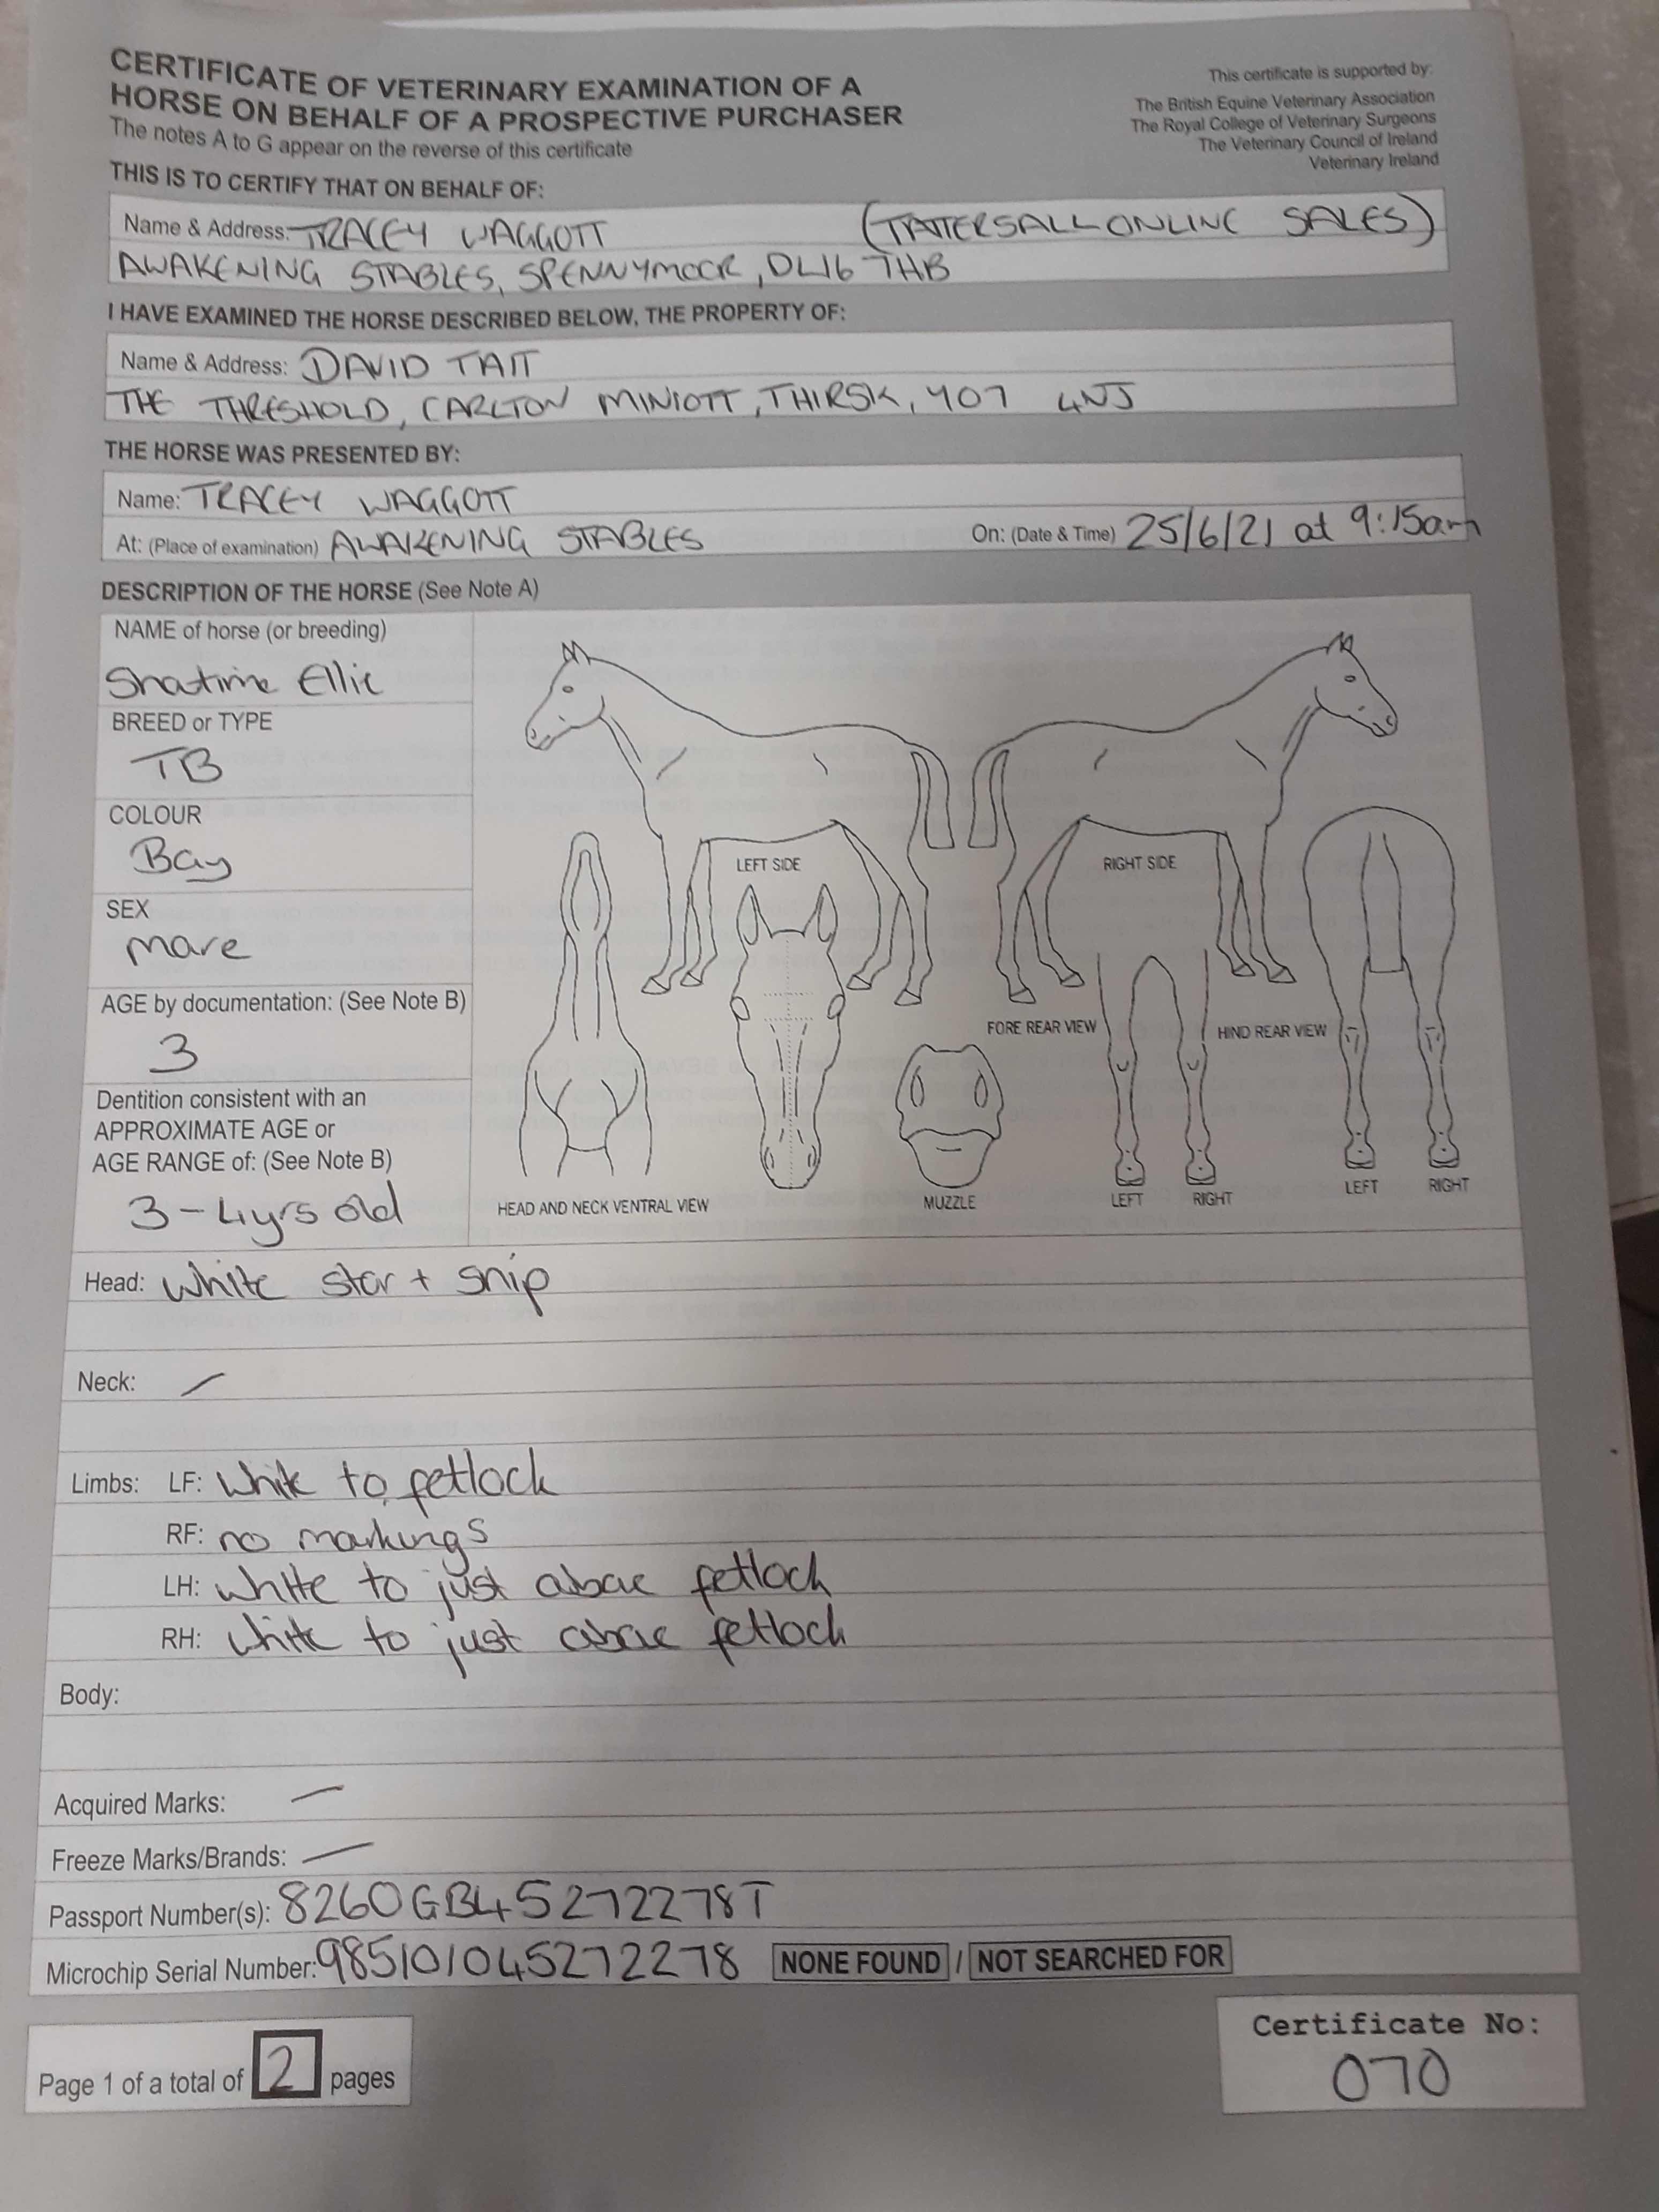 CERTIFICATE OF VETERINARY EXAMINATION OF A
HORSE ON BEHALF OF A PROSPECTIVE PURCHASER
The notes A to G appear on the reverse of this certificate
This certificate is supported by:
The British Equine Veterinary Association
The Royal College of Veterinary Surgeons
The Veterinary Council of Ireland
Veterinary Ireland
THIS IS TO CERTIFY THAT ON BEHALF OF:
Name & Address: TRACEY WAGGOTT (TATTERSALL ONLINE SALES)
AWAKENING STABLES, SPENNYMOOR, DL16 7HB
I HAVE EXAMINED THE HORSE DESCRIBED BELOW, THE PROPERTY OF:
Name & Address: DAVID TAIT
THE THRESHOLD, CARLTON MINIOTT, THIRSK, YO7 4NJ
THE HORSE WAS PRESENTED BY:
Name: TRACEY WAGGOTT
At: (Place of examination) AWAKENING STABLES On: (Date & Time) 25/6/21 at 9:15am
DESCRIPTION OF THE HORSE (See Note A)
NAME of horse (or breeding)
Ellie
BREED or TYPE
TB
COLOUR
Bay
SEX
mare
AGE by documentation: (See Note B)
3
Dentition consistent with an
APPROXIMATE AGE or
AGE RANGE of: (See Note B)
3-4yrs old
LEFT SIDE
RIGHT SIDE
FORE REAR VIEW
HIND REAR VIEW
HEAD AND NECK VENTRAL VIEW
MUZZLE
LEFT RIGHT
LEFT RIGHT
Head: white star + snip
Neck: /
Limbs: LF: white to fetlock
RF: no markings
LH: white to just above fetlock
RH: white to just above fetlock
Body:
Acquired Marks: /
Freeze Marks/Brands: /
Passport Number(s): 8260GB45272278T
Microchip Serial Number: 985101045272278 NONE FOUND / NOT SEARCHED FOR
Page 1 of a total of 2 pages
Certificate No:
070